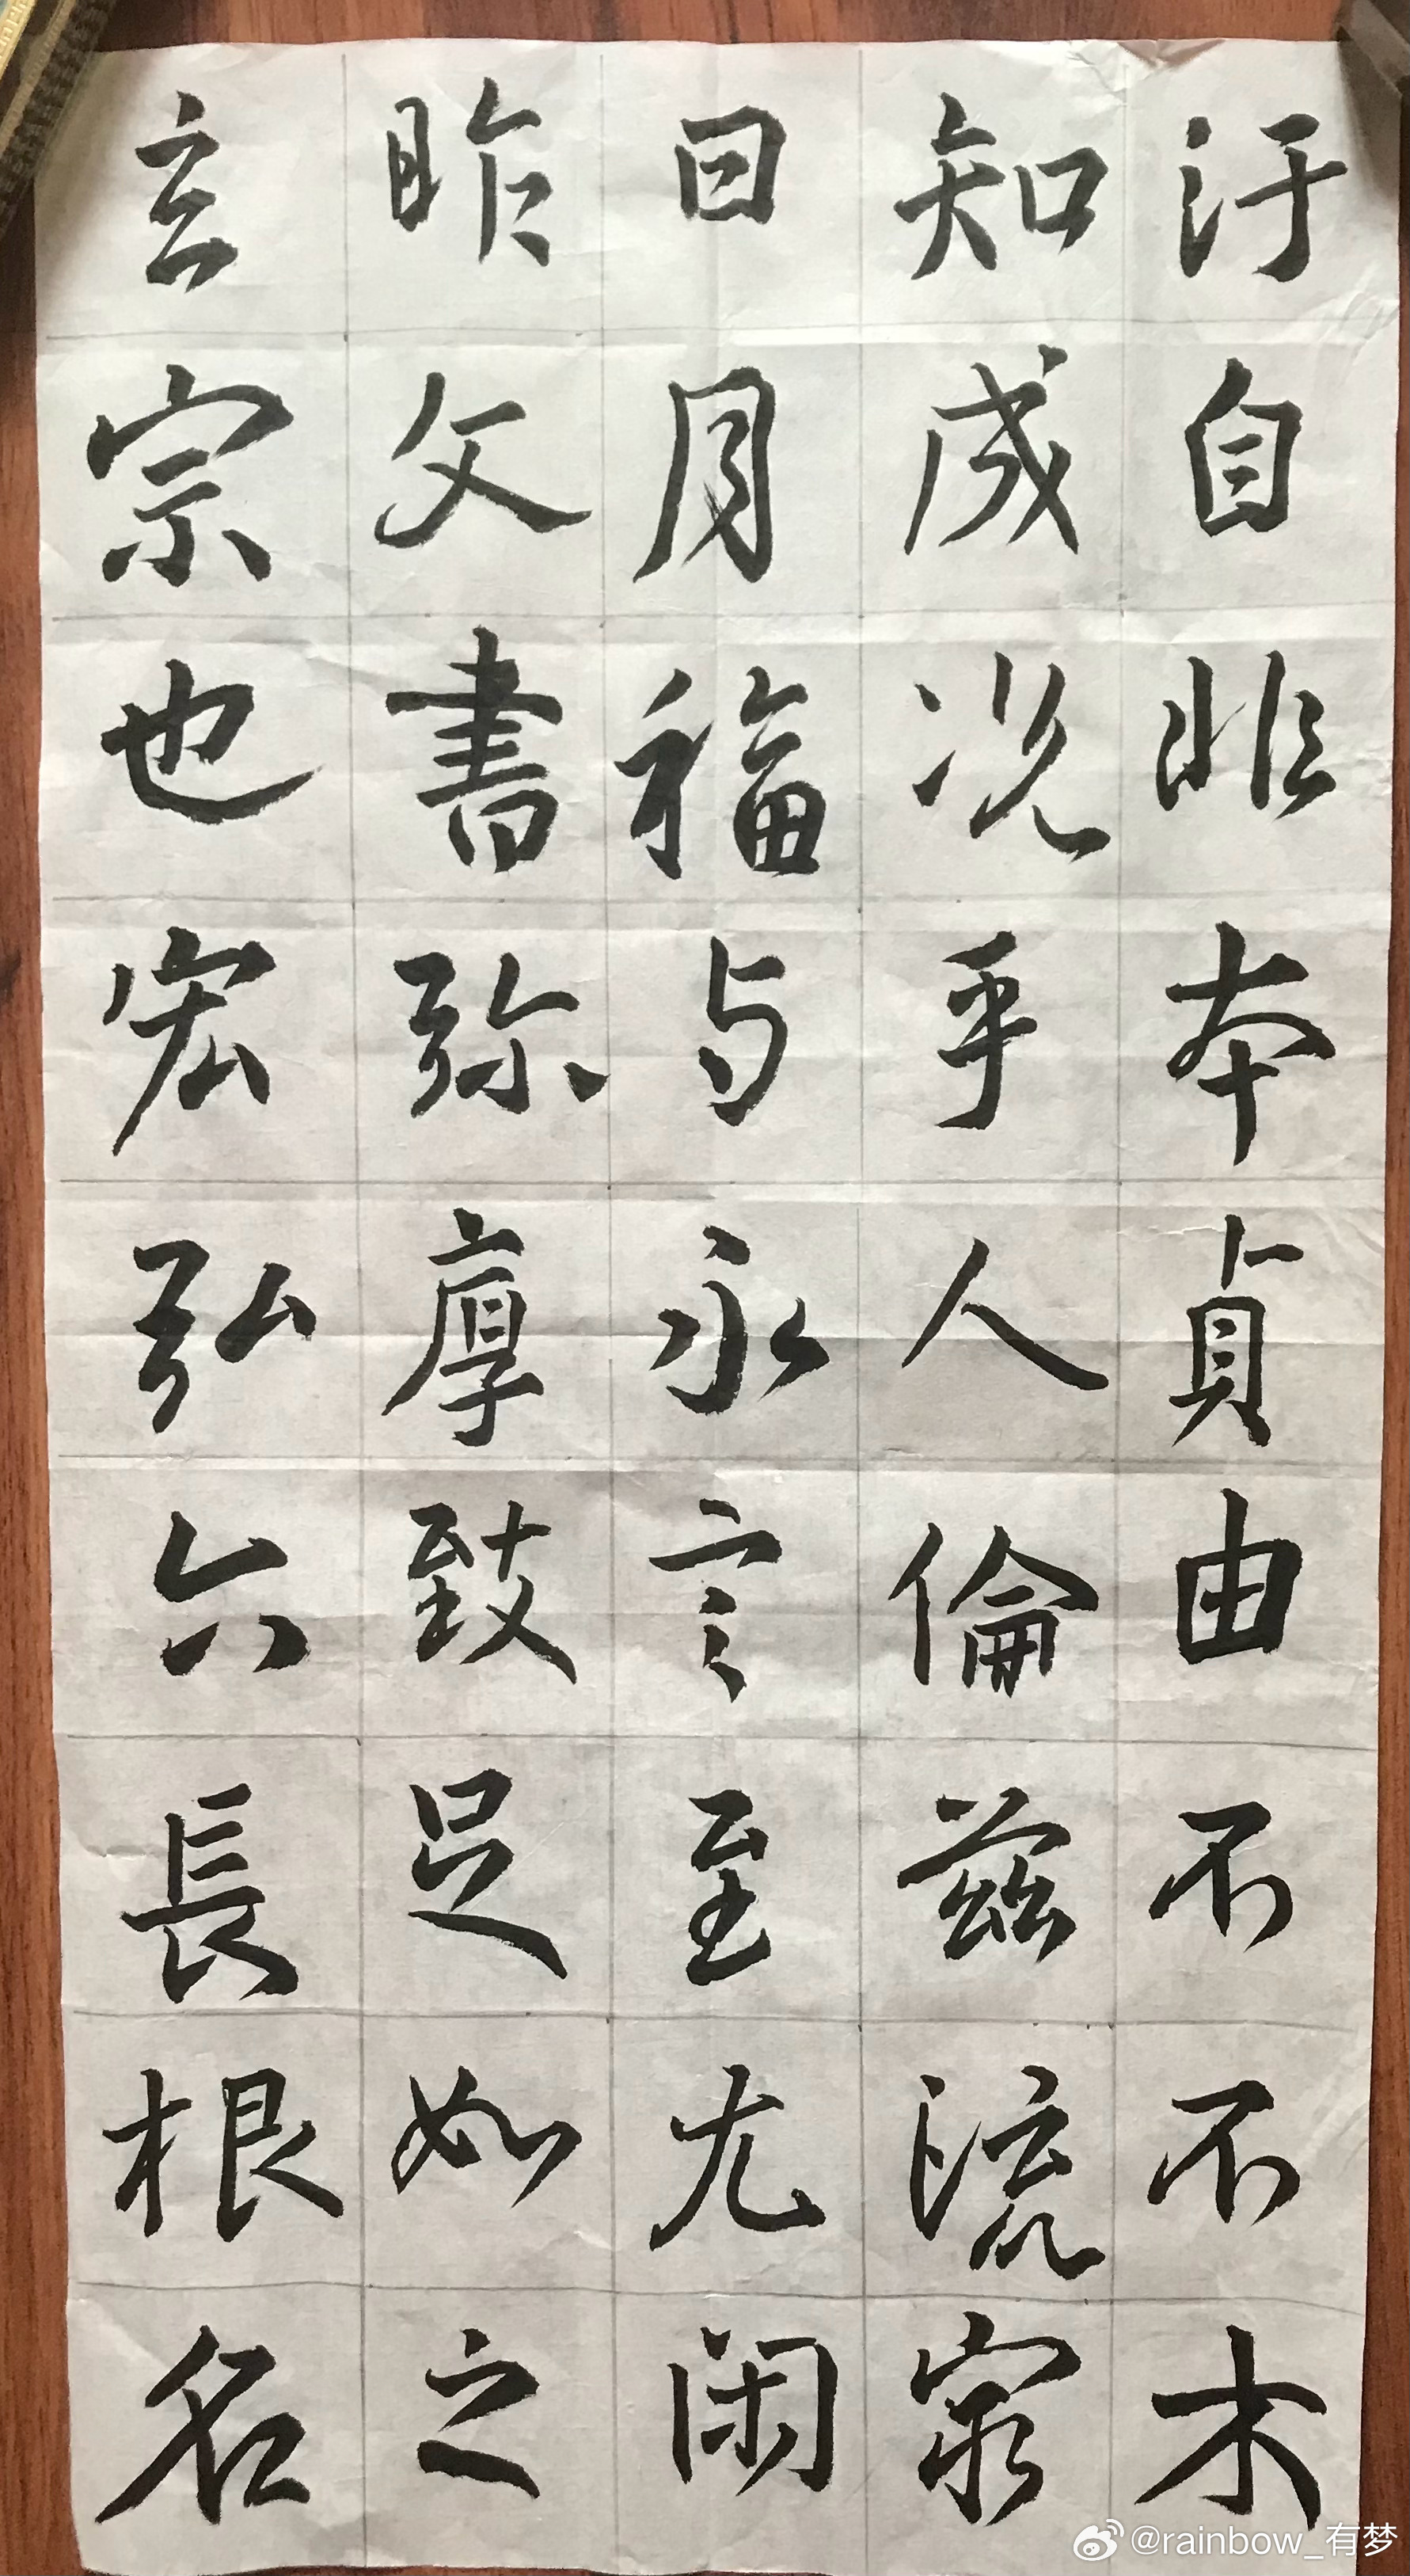 汙自非本貞由不不木
知成況乎人倫茲流家
日月福与永言至尤閑
昨文書弥厚致足如之
玄宗也宏弘六長根名
@rainbow_有梦